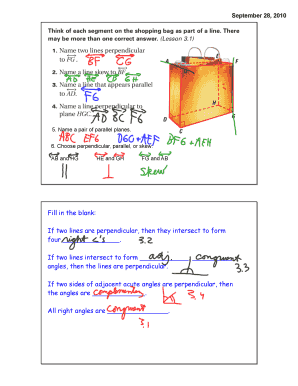 September 28, 2010
Think of each segment on the shopping bag as part of a line. There
may be more than one correct answer. (Lesson 3.1)
1. Name two lines perpendicular
to FG. BF CG
2. Name a line skew to BF.
AD HE CD GH
3. Name a line that appears parallel
to AD. FG
4. Name a line perpendicular to
plane HGC. AD BC FG
5. Name a pair of parallel planes.
ABC EFG DGC + AEF BFG + AEH
6. Choose perpendicular, parallel, or skew.
AB and HG HE and GH FG and AB
|| ⊥ Skew
Fill in the blank:
If two lines are perpendicular, then they intersect to form
four right ∠'s. 3.2
If two lines intersect to form adj. congruent
angles, then the lines are perpendicular. 3.3
If two sides of adjacent acute angles are perpendicular, then
the angles are complementary 3.4
All right angles are congruent.
3.1